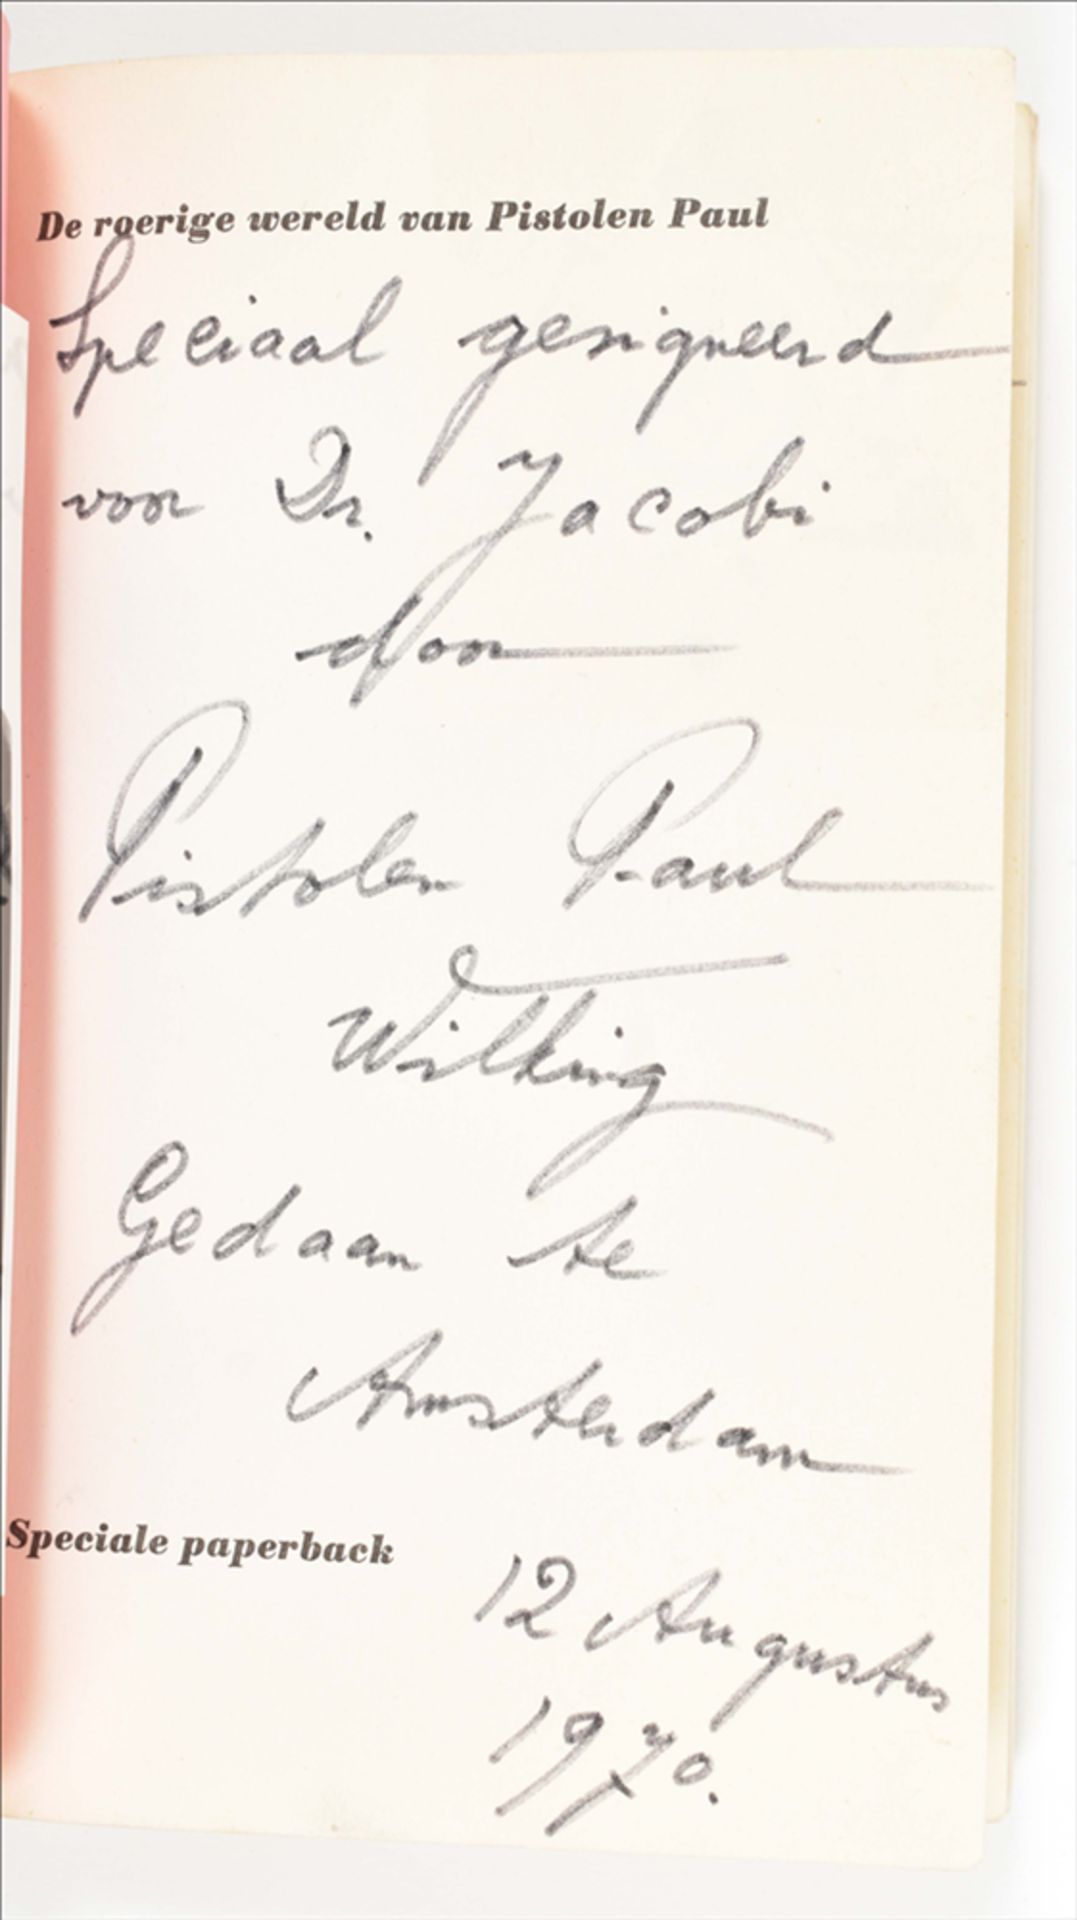 De roerige wereld van Pistolen Paul
Speciaal gesigneerd
voor Dr. Jacobi
door
Pistolen Paul
Wilking
Gedaan te
Amsterdam
Speciale paperback
12 Augustus
1970.